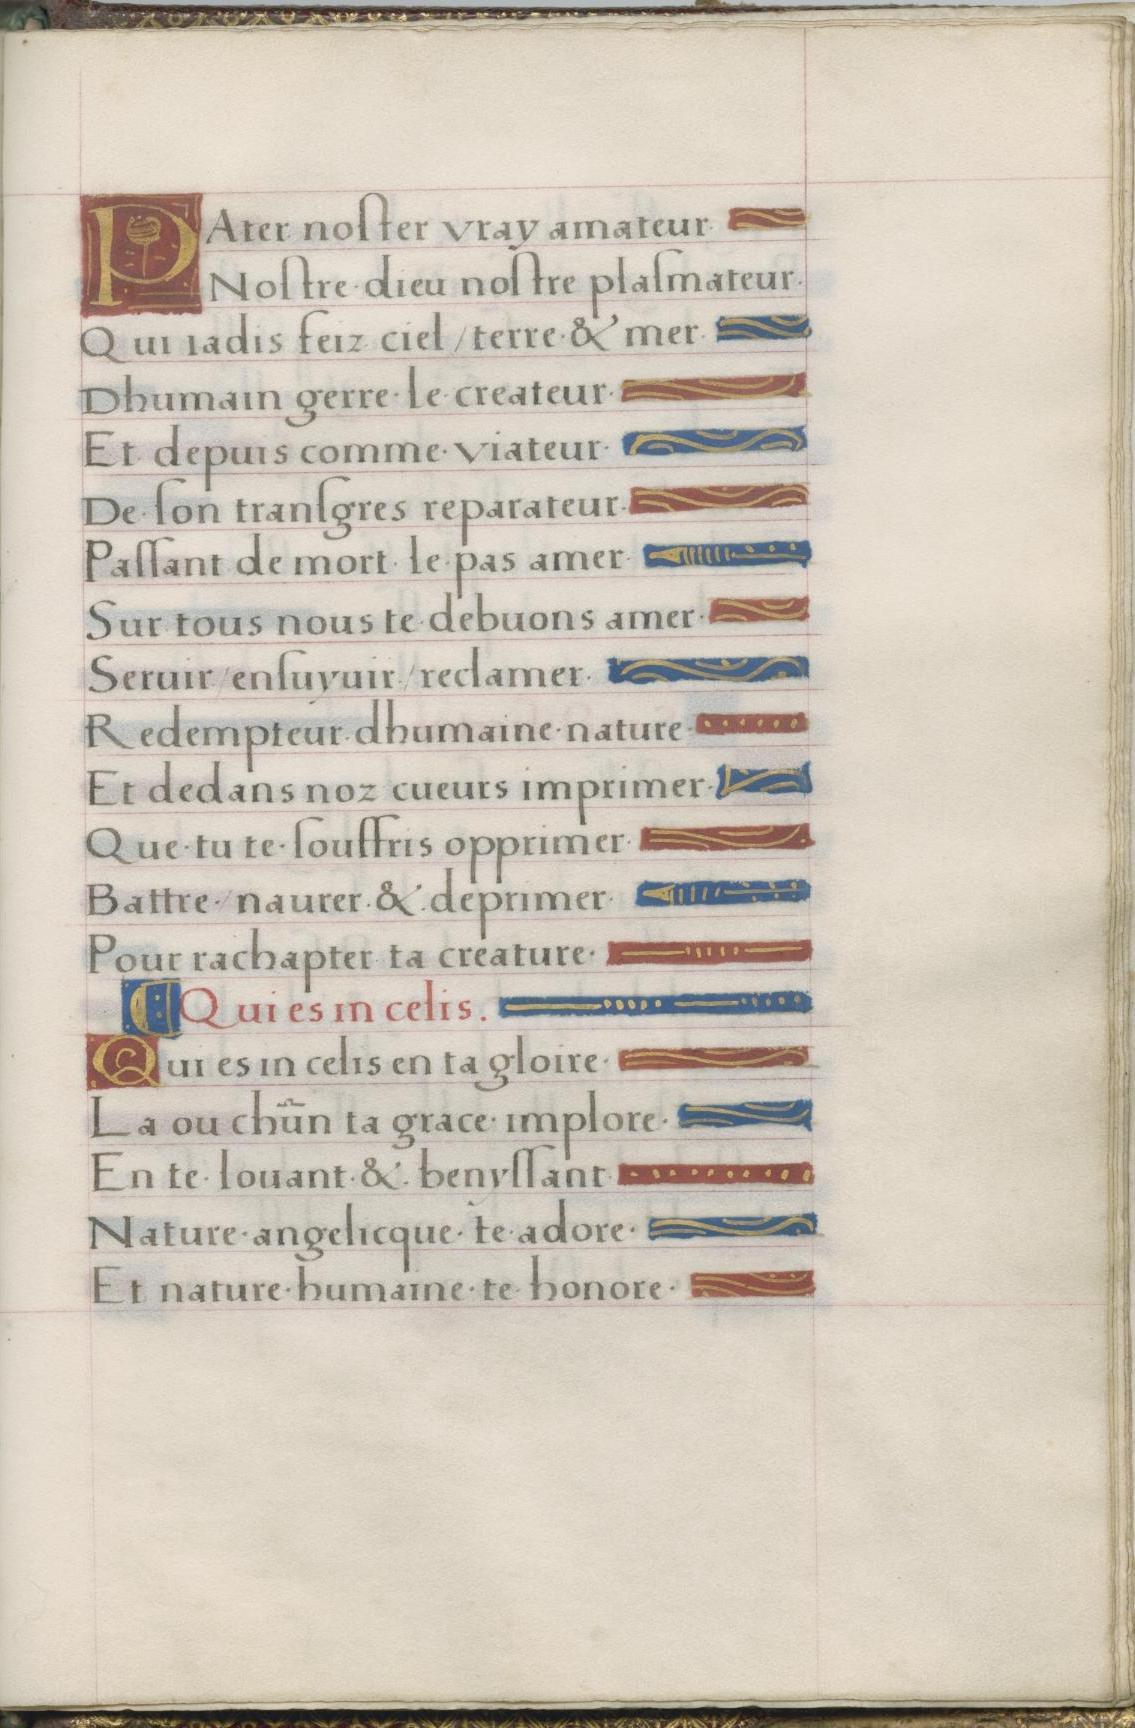 PAter noſter vray amateur
Noſtre dieu noſtre plaſmateur.
Qui iadis feiz ciel / terre & mer
Dhumain gerre le createur.
Et depuis comme viateur.
De ſon tranſgres reparateur.
Paſſant de mort le pas amer
Sur tous nous te debuons amer.
Seruir / enſuyuir / reclamer.
Redempteur dhumaine nature.
Et dedans noz cueurs imprimer.
Que tu te ſouffris opprimer
Battre / naurer & deprimer
Pour rachapter ta creature.
Qui es in celis.
Qui es in celis en ta gloire.
La ou chũn ta grace implore.
En te louant & benyſſant
Nature angelicque te adore.
Et nature humaine te honore.